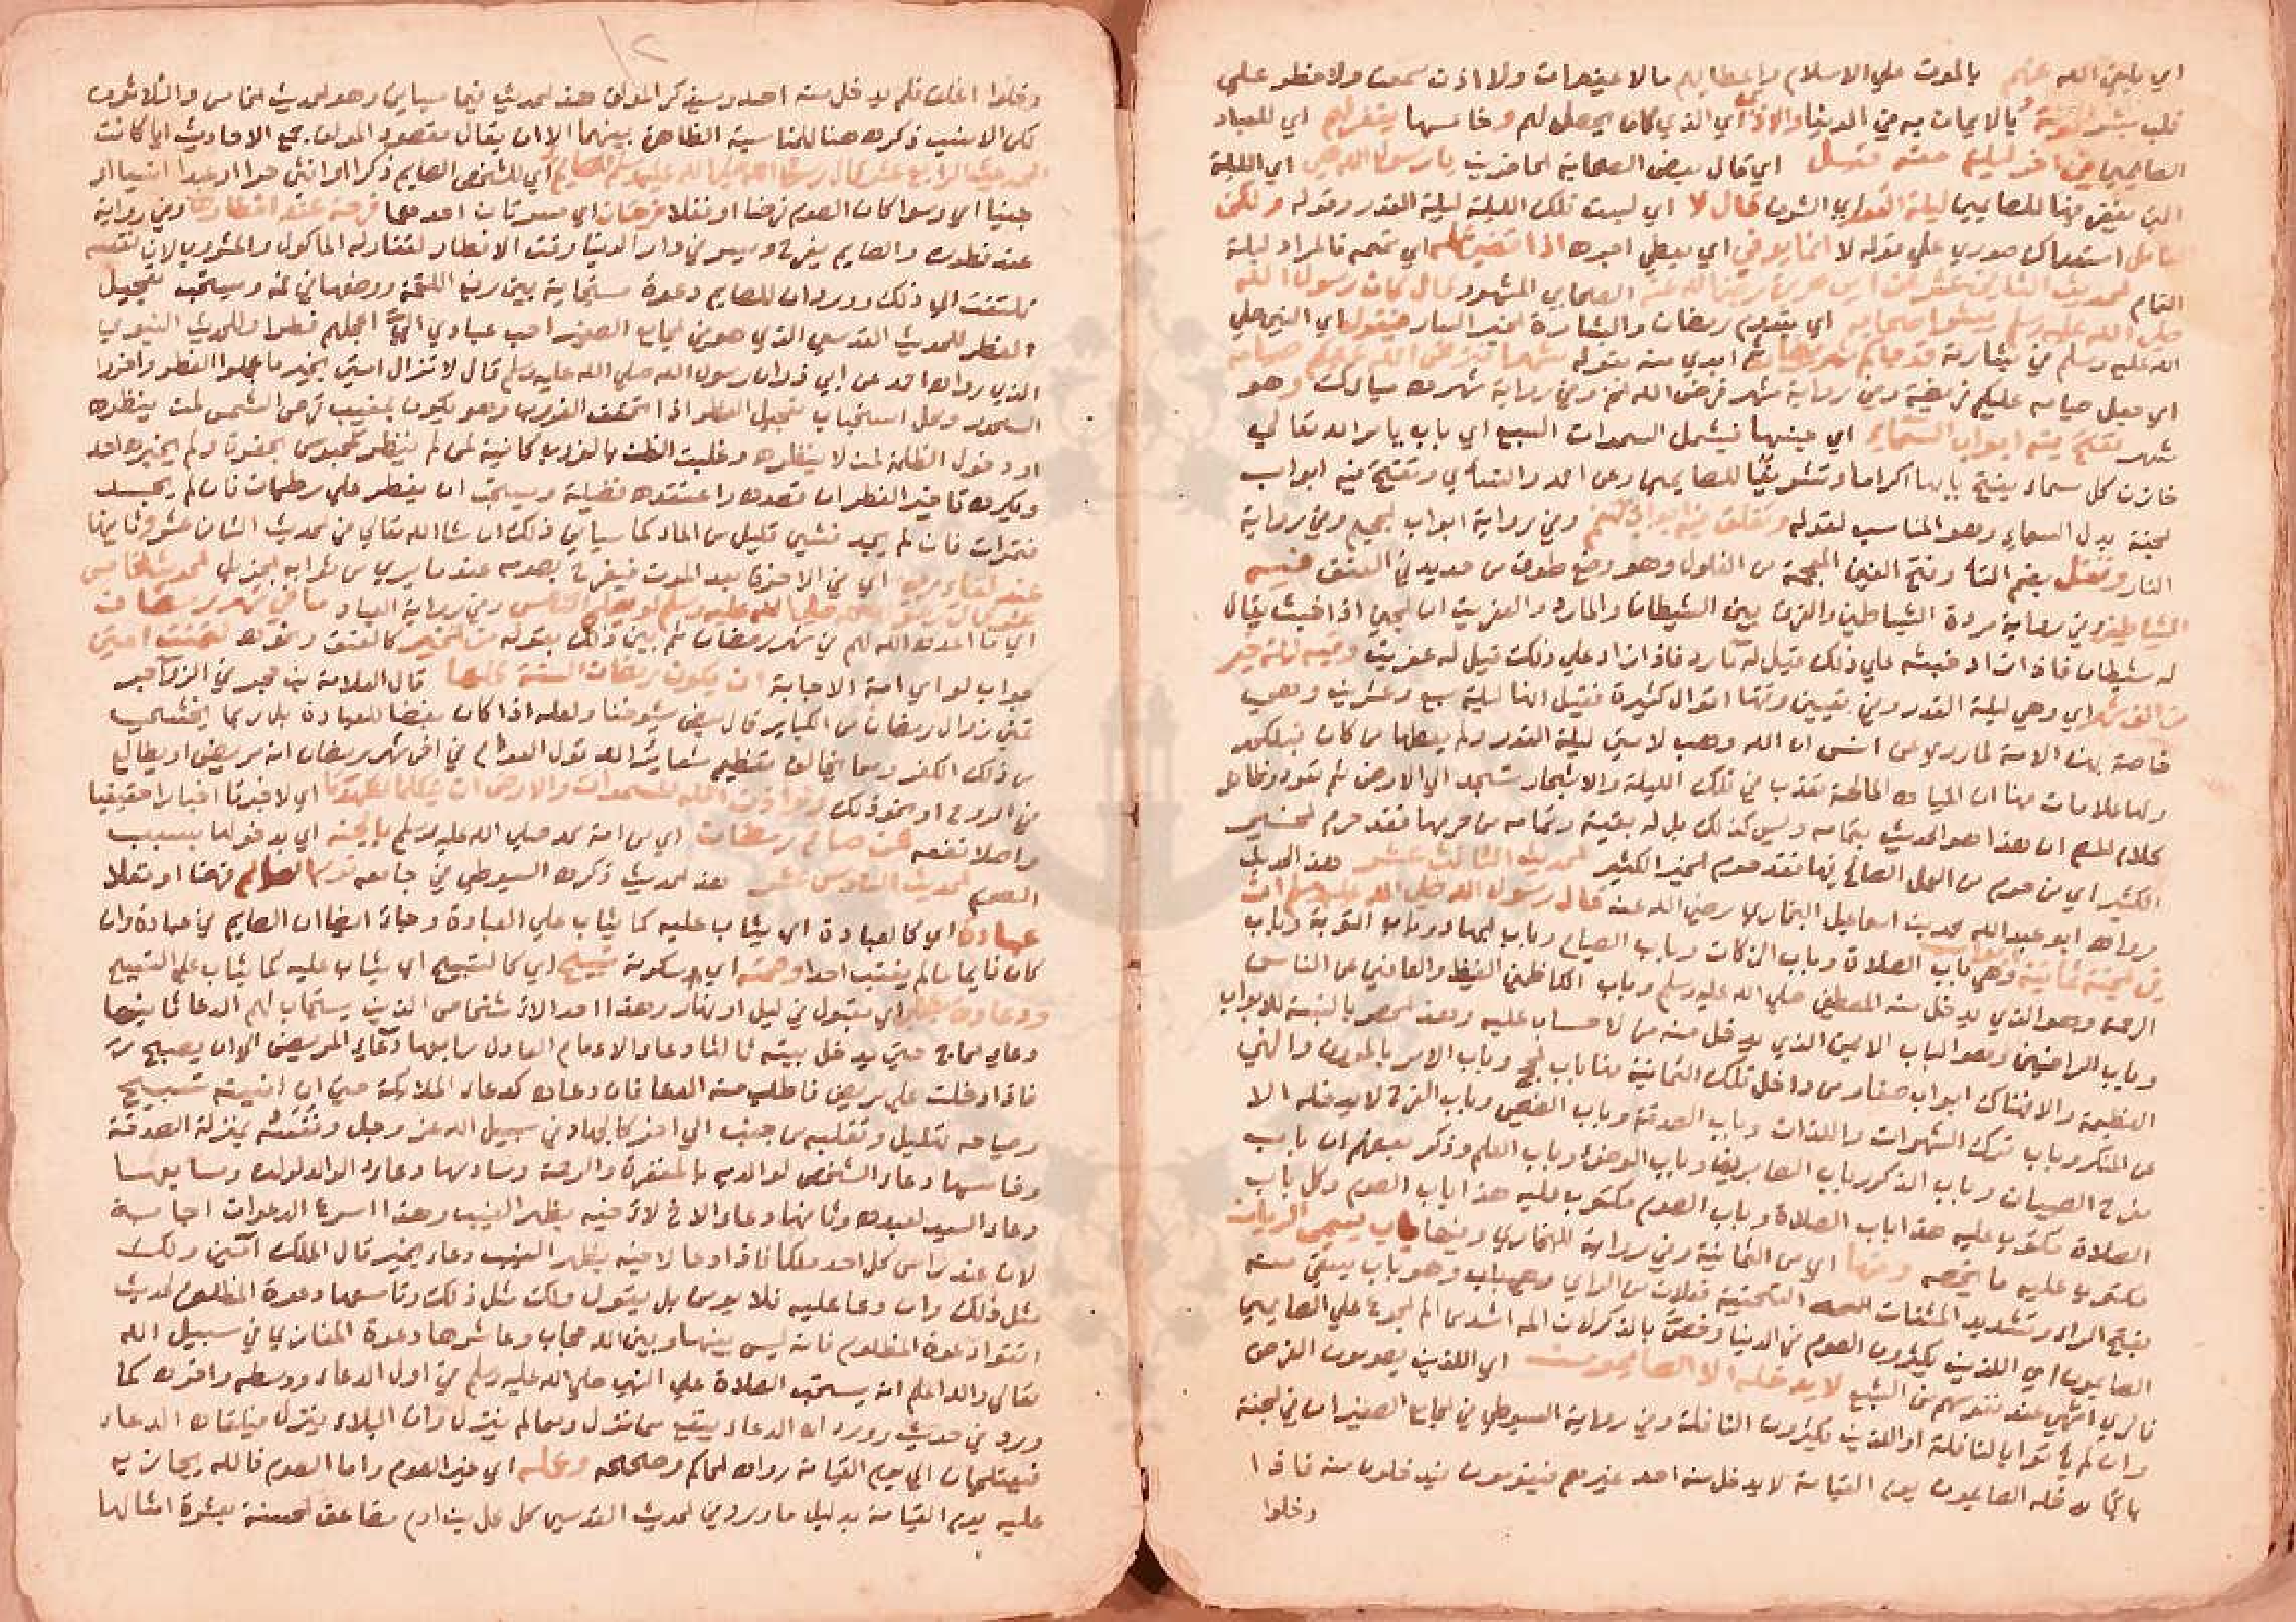 اي يلقي الله عنهم بالموت علي الاسلام واعطايهم مالا عين رات ولا اذن سمعت ولا خطر علي
قلب بشر بالايمان به في الدنيا والاذي اي الذي كان يحصل لهم وخامسها يغفر لهم اي للعباد
الصايمين في اخر ليلة منه فقيل اي قال بعض الصحابة الحاضرين يا رسول الله هي اي الليلة
التي يغفر فيها للصايمين ليلة القدر اي الشرف قال لا اي ليست تلك الليلة ليلة القدر وقوله ولكن
العامل استدراك صوري علي قوله لا انما يوفي اي يعطي اجره اذا قضي عمله اي تممه فالمراد ليلة
التمام الحديث الثاني عشر عن ابي هريرة رضي الله عنه الصحابي المشهور قال كان رسول الله
صلي الله عليه وسلم يبشر اصحابه اي بقدوم رمضان والبشارة الخبر السار فيقول اي النبي صلي
الله عليه وسلم في بشارته قد جاكم شهر رمضان ثم ابدي منه بقوله شهر افترض الله عليكم صيامه
اي جعل صيامه عليكم فريضة وفي رواية شهر فرض الله وفي رواية شهر مبارك وهو
شهر تفتح فيه ابواب السماء اي جنسها فيشمل السموات السبع اي باب يامر الله تعالي
خازن كل سماء يفتح بابها اكراما وتشريفا للصايمين وعن احمد والنسأي وتفتح فيه ابواب
الجنة بدل السماء وهو المناسب لقوله وتغلق فيه ابواب جهنم وفي رواية ابواب الجحيم وفي رواية
النار وتغل بضم التا وفتح الغين المعجمة من الغلول وهو وضع طوق من حديد في العنق فيه
الشياطين وفي رواية مردة الشياطين والفرق بين الشيطان والمارد والعفريت ان الجن اذا خبث يقال
له شيطان فاذا زاد خبثه علي ذلك قيل له مارد فاذا زاد علي ذلك قيل له عفريت وفيه ليلة خير
من الف شهر اي وهي ليلة القدر وفي تعيين وقتها اقوال كثيرة فقيل انها ليلة سبع وعشرين وهي
خاصة بهذه الامة لما روي عن انس ان الله وهب لامتي ليلة القدر ولم يعطها من كان قبلكم
ولها علامات منها ان المياه المالحة تعذب في تلك الليلة والاشجار تسجد الي الارض ثم تعود وظاهر
كلام المص ان هذا هو الحديث بتمامه وليس كذلك بل له بقية وتمامه من حرمها فقد حرم الخير
الكثير اي من حرم من العمل الصالح فيها فقد حرم الخير الكثير الحديث الثالث عشر هذا الحديث
رواه ابو عبد الله محمد بن اسماعيل البخاري رضي الله عنه قال رسول الله صلي الله عليه وسلم ان
في الجنة ثمانية ابواب وهي باب الصلاة وباب الزكات وباب الصيام وباب الجهاد وباب التوبة وباب
الرحمة وهو الذي يدخل منه المصطفي صلي الله عليه وسلم وباب الكاظمين الغيظ والعافين عن الناس
وباب الراضيين وهو الباب الايمن الذي يدخل منه من لا حساب عليه وهذا الحصر بالنسبة للابواب
العظيمة والا فهناك ابواب صغار من داخل تلك الثمانية منها باب الحج وباب الامر بالمعروف والنهي
عن المنكر وباب ترك الشهوات واللذات وباب الصدقة وباب الضحي وباب الفرح لا يدخله الا
مفرح الصبيان وباب الذكر وباب الصابرين وباب الوضوء وباب العلم وذكر بعضهم ان باب
الصلاة مكتوب عليه هذا باب الصلاة وباب الصوم مكتوب عليه هذا باب الصوم وكل باب
مكتوب عليه ما يخصه ومنها اي من الثمانية وفي رواية للبخاري وفيها باب يسمي الريان
بفتح الراء وتشديد المثناة التحتية فعلان من الري وهو باب يسقي منه
الصايمون اي الذين يكثرون الصوم في الدنيا وخص بالذكر لان الم اشد من الم الجوع علي الصايمين
فالري اشهي عند نفوسهم من الشبع لا يدخله الا الصايمون اي الذين يصومون الفرض
وان لم ياتوا بالنافلة او الذين يكثرون النافلة وفي رواية السيوطي في الجامع الصغير ان في الجنة
بابا يدخله الصايمون يوم القيامة لا يدخل منه احد غيرهم فيقومون فيدخلون منه فاذا
دخلوا
دخلوا اغلق فلم يدخل منه احد وسيذكر المولف هذا الحديث فيما سياتي وهو الحديث الخامس والثلاثون
لكن الانسب ذكره هنا للمناسبة الظاهرة بينهما الا ان يقال مقصود المولف جمع الاحاديث ايا كانت
الحديث الرابع عشر قال رسول الله صلي الله عليه وسلم للصايم اي للشخص الصايم ذكرا او انثي حرا او عبدا انسيا او
جنيا اي وسوا كان الصوم فرضا او نفلا فرحتان اي مسرتان احدهما فرحة عند افطاره وفي رواية
عند فطره والصايم يفرح ويسر في دار الدنيا وقت الافطار لتناوله الماكول والمشروب لان نفسه
تلتفت الي ذلك وورد ان للصايم دعوة مستجابة بين رفع اللقمة ووضعها في فمه ويستحب تعجيل
الفطر للحديث القدسي الذي هو في الجامع الصغير احب عبادي الي اعجلهم فطرا وللحديث النبوي
الذي رواه احمد عن ابي ذر ان رسول الله صلي الله عليه وسلم قال لا تزال امتي بخير ما عجلوا الفطر واخروا
السحور ومحل استحباب تعجيل الفطر اذا تحقق الغروب وهو يكون بمغيب قرص الشمس لمن ينظره
او دخول الظلمة لمن لا ينظره وغلبت الظن بالغروب كافية لمن لم ينظر كمحبوس بحفرة ولم يخبره احد
ويكره تاخير الفطر ان قصده واعتقده فضيلة ويستحب ان يفطر علي رطبات فان لم يجد
فتمرات فان لم يجد فشيء قليل من الماء كما سياتي ذلك ان شا الله تعالي في الحديث الثامن عشر وثانيهما
عند لقاء ربه اي في الاخرة بعد الموت فيفرح بصومه عند ما يري من ثوابه الجزيل الحديث الخامس
عشر قال رسول الله صلي الله عليه وسلم لو يعلم الناس وفي رواية العباد ما في شهر رمضان
اي ما اعده الله لهم في شهر رمضان ثم بين ذلك بقوله من الخير كالعتق ونحوه لتمنت امتي
جواب لو اي امة الاجابة ان يكون رمضان السنة كلها قال العلامة بن حجر في الزواجر
تمني زوال رمضان من الكباير قال بعض شيوخنا ولعله اذا كان بغضا للعبادة بل ربما يخشي
من ذلك الكفر ومما يخالف تعظيم شعاير الله قول العوام في اخر شهر رمضان انه مريض او يطالع
في الروح او نحو ذلك ولو اذن الله للسموات والارض ان يتكلما لشهدتا اي لاخبرتا اخبارا حقيقيا
واصلا تنفعه لمن صام رمضان اي من امة محمد صلي الله عليه وسلم بالجنة اي بدخولها بسبب
الصوم الحديث السادس عشر هذا الحديث ذكره السيوطي في جامعه نوم الصايم فرضا او نفلا
عبادة اي كالعبادة اي يثاب عليه كما يثاب علي العبادة وجاء ايضا ان الصايم في عبادة وان
كان نايما ما لم يغتب احدا وصمته اي سكوته تسبيح اي كالتسبيح اي يثاب عليه كما يثاب علي التسبيح
ودعاوه مستجاب اي مقبول في ليل او نهار وهذا احد الاشخاص الذين يستجاب لهم الدعا ثانيها
دعاء الحاج حتي يدخل بيته ثالثها دعاء الامام العادل رابعها دعاء المريض الي ان يصبح
فاذا دخلت علي مريض فاطلب منه الدعا فان دعاه كدعاء الملايكة حتي ان انينه تسبيح
وصياحه تهليل وتقلبه من جنب الي اخر كالجهاد في سبيل الله عز وجل ونفثه بمنزلة الصدقة
وخامسها دعاء الشخص لوالديه بالمغفرة والرحمة وسادسها دعاء الوالد لولده وسابعها
دعاء السيد لعبده وثامنها دعاء الاخ لاخيه بظهر الغيب وهذا اسرع الدعوات اجابة
لان عند راس كل احد ملكا فاذا دعا لاخيه بظهر الغيب دعاء بخير قال الملك آمين ولك
مثل ذلك وان دعا عليه فلا يومن بل يقول ولك مثل ذلك وتاسعها دعوة المظلوم لحديث
اتقوا دعوة المظلوم فانه ليس بينها وبين الله حجاب وعاشرها دعوة الغازي في سبيل الله
تعالي والله اعلم انه يستحب الصلاة علي النبي صلي الله عليه وسلم في اول الدعاء ووسطه واخره كما
ورد في حديث وورد ان الدعاء ينفع مما نزل ومما لم ينزل وان البلاء ينزل فيلقاه الدعاء
فيعتلجان الي يوم القيامة رواه الحاكم وصححه وعمله اي غير الصوم واما الصوم فالله يجازيه
عليه يوم القيامة بدليل ما ورد في الحديث القدسي كل عمل بن ادم مضاعف الحسنة بعشرة امثالها